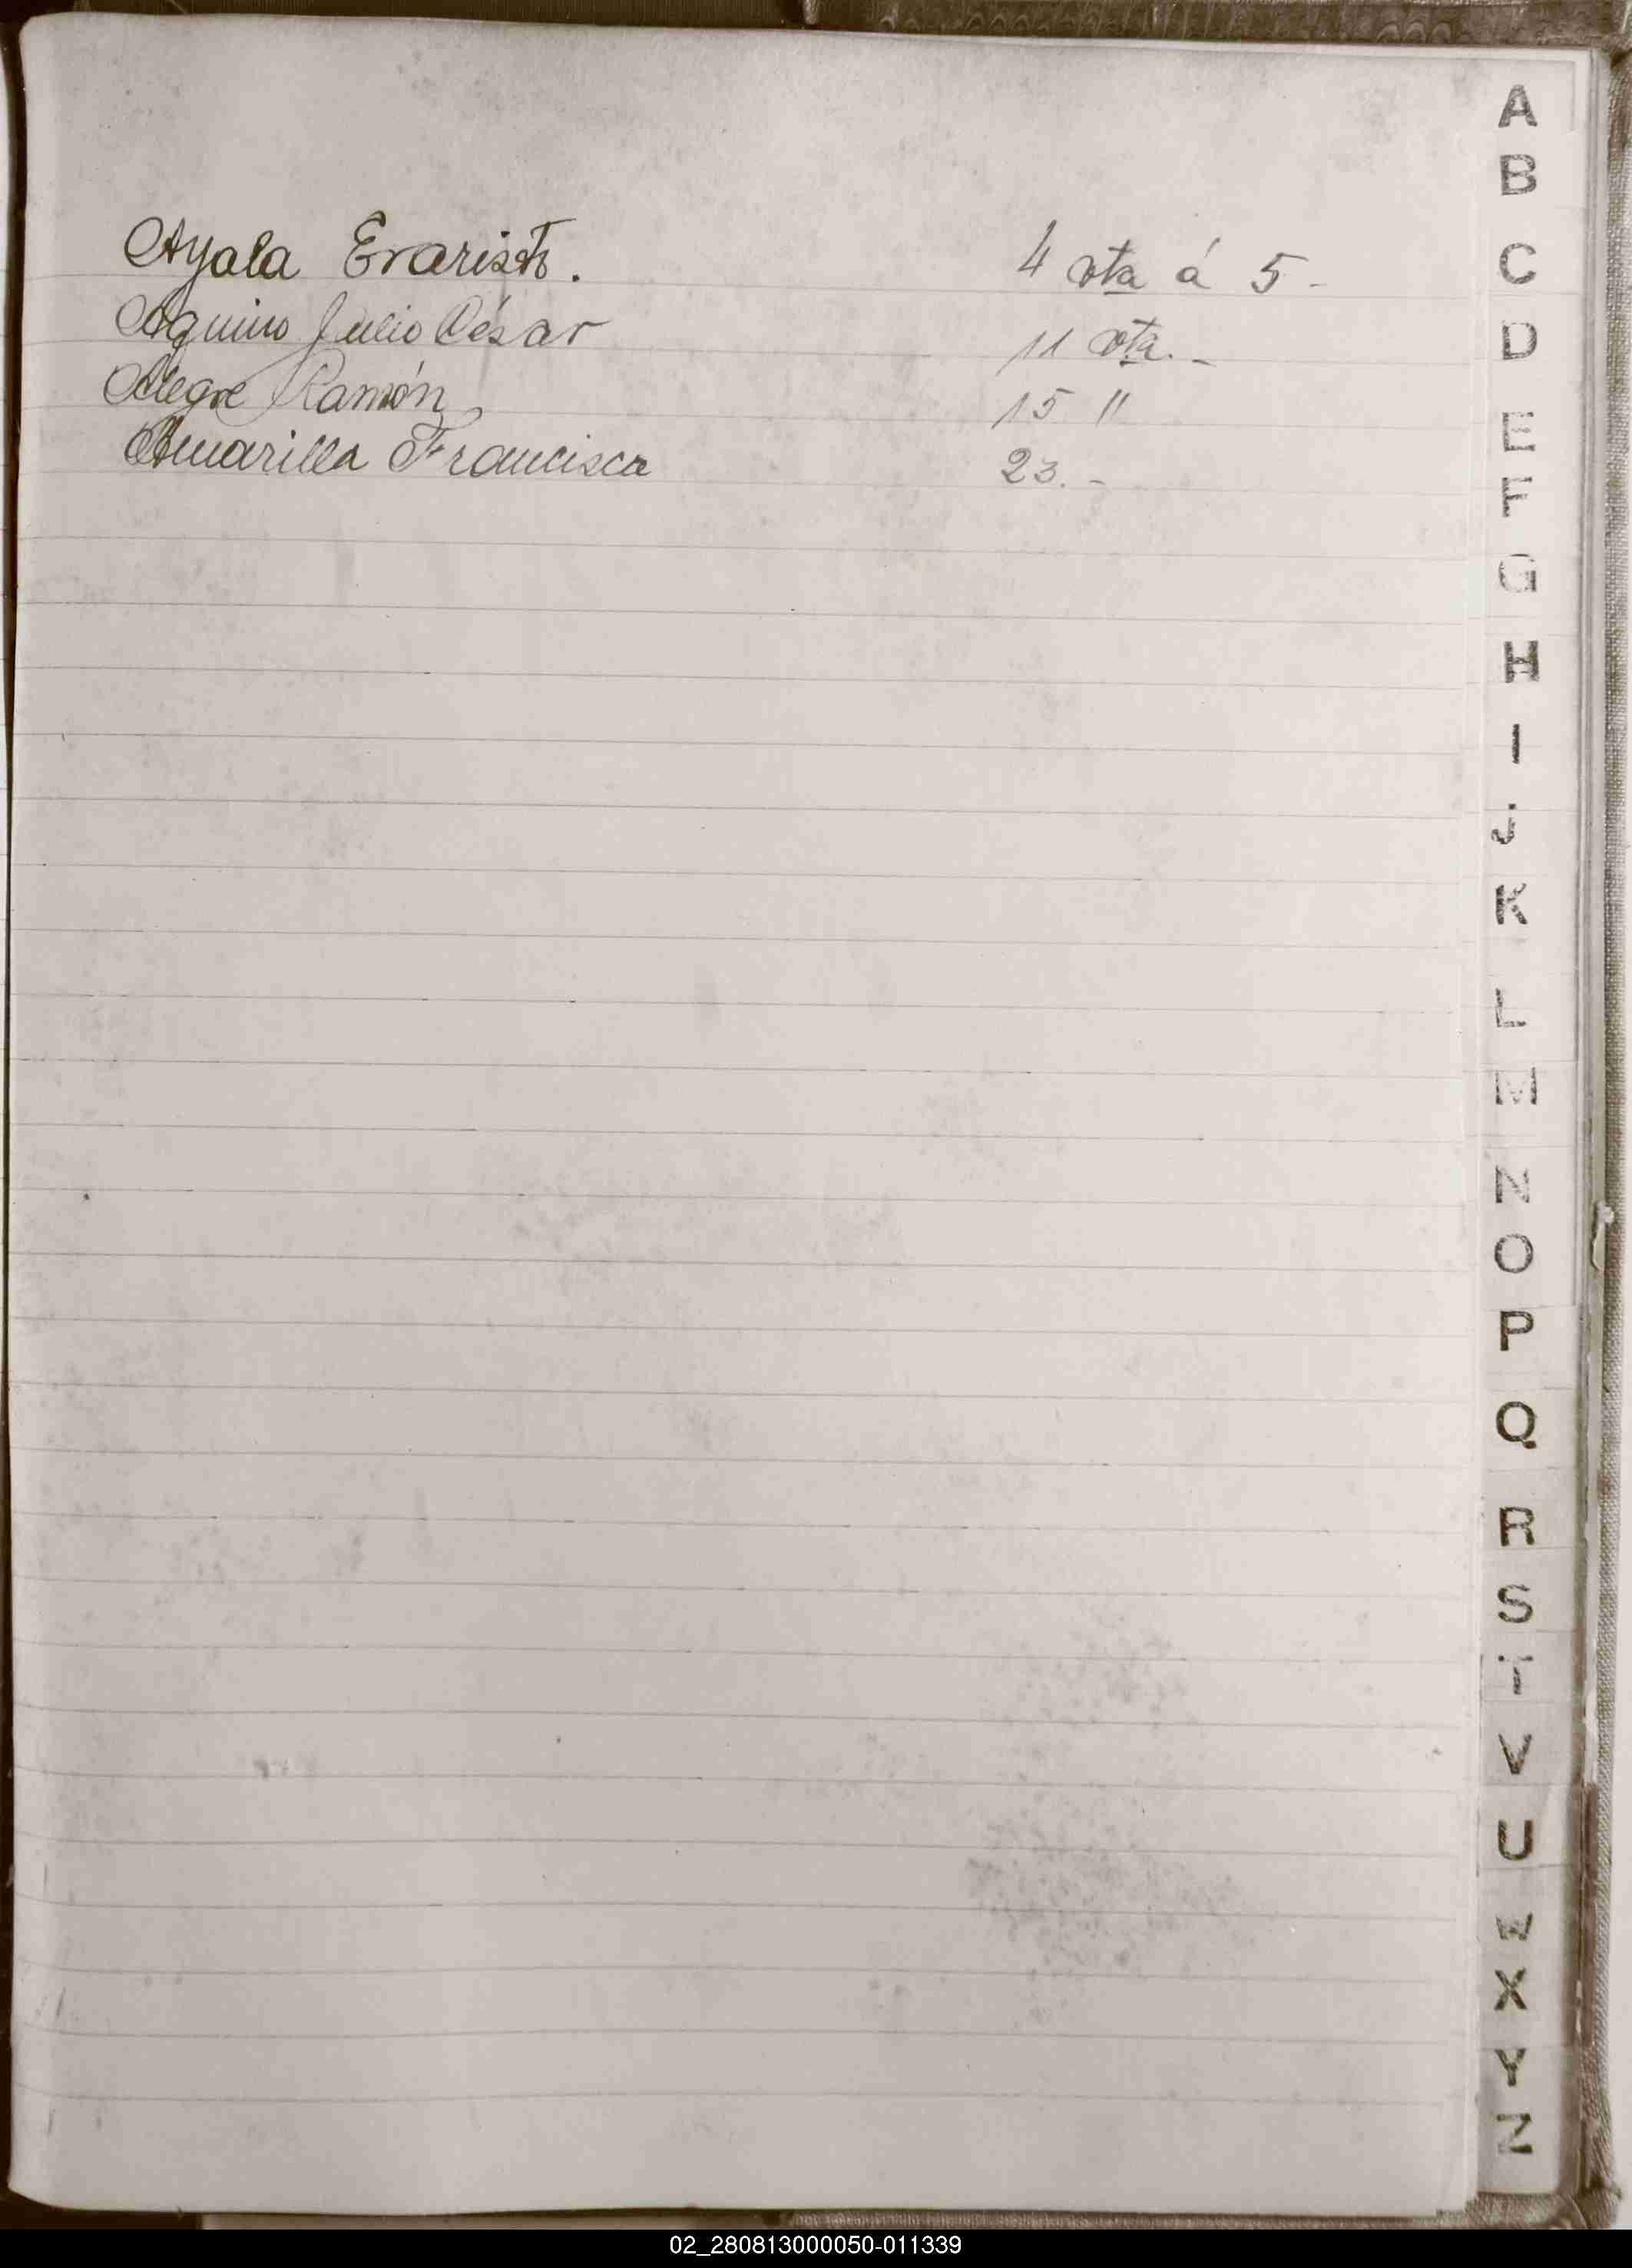 Ayala Evaristo. 4 vta á 5-
Aquino Julio César 11 vta.-
Alegre Ramón 15 "
Amarilla Francisca 23.-
A
B
C
D
E
F
G
H
I
J
K
L
M
N
O
P
Q
R
S
T
V
U
W
X
Y
Z
02_280813000050-011339